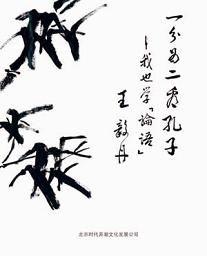 一分为二看孔子
—我也学「論語」
王毅丹
北京时代弄潮文化发展公司